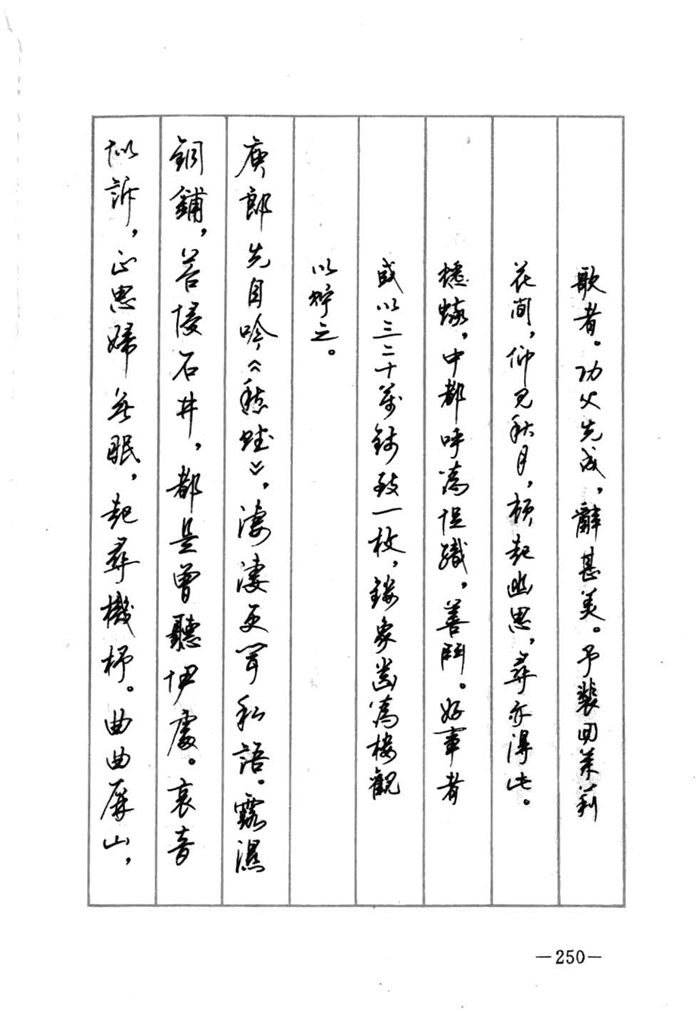 歌者。功父先成，辭甚美。予裴回茉莉
花間，仰見秋月，頓起幽思，尋亦得此。
蟋蟀，中都呼為促織，善鬥。好事者
或以三二十萬錢致一枚，鏤象齒為樓觀
以貯之。
庾郎先自吟《愁賦》，淒淒更聞私語。露濕
銅鋪，苔侵石井，都是曾聽伊處。哀音
似訴，正思婦無眠，起尋機杼。曲曲屏山，
—250—